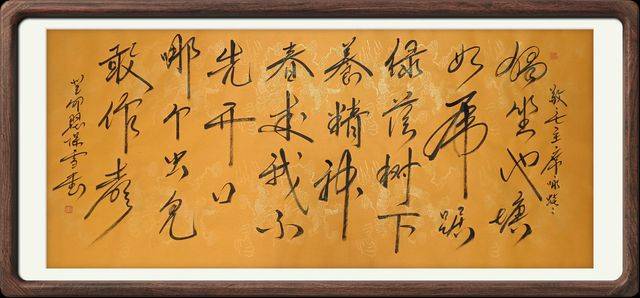 敬毛主席咏蛙
独坐池塘
如虎踞
绿荫树下
养精神
春来我不
先开口
哪个虫兒
敢作声